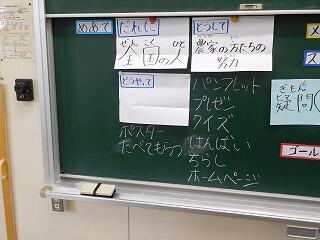 めあて
だれに
ぜん こく ひと
全国の人
どうして
農家の方たちの
努力
どうやって
ポスター
たべてもらう
パンフレット
プレゼン
クイズ
はんばい
ちらし
ホームページ
メ
ス
ぎもん
疑問
ゴール